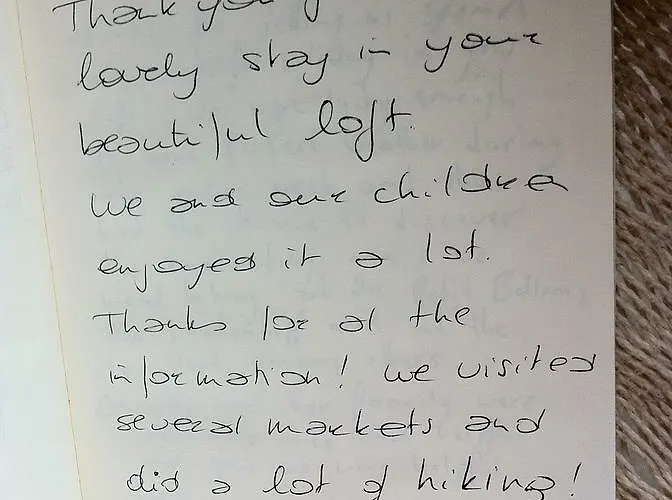 Thank you
lovely stay in your
beautiful loft.
We and our children
enjoyed it a lot.
Thanks for al the
information! we visited
several markets and
did a lot of hiking!